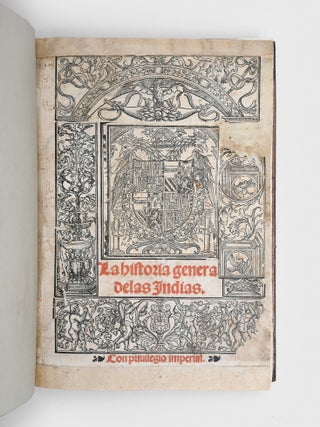 La historia genera
delas Indias.
Con priuilegio imperial.